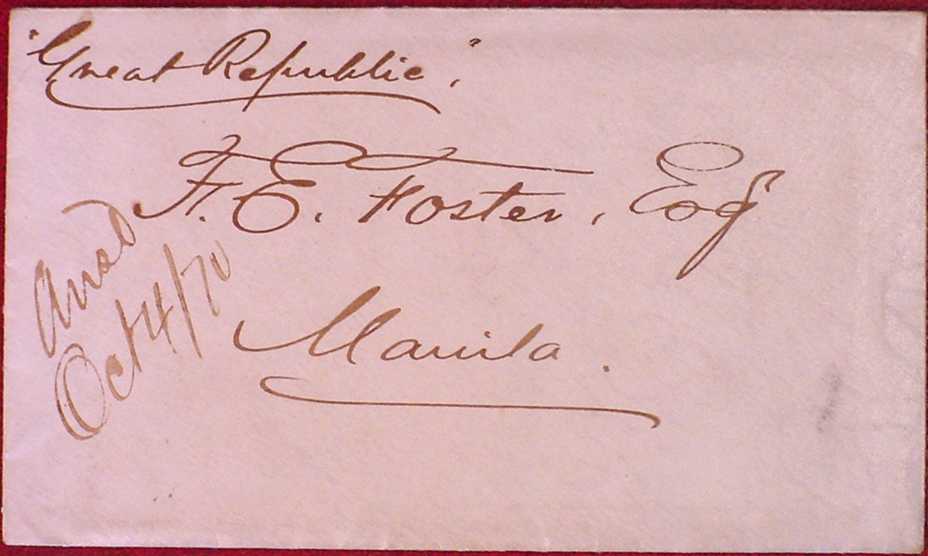 "Great Republic".
F. E. Foster, Esq
Ansd
Oct 4/70
Manila.